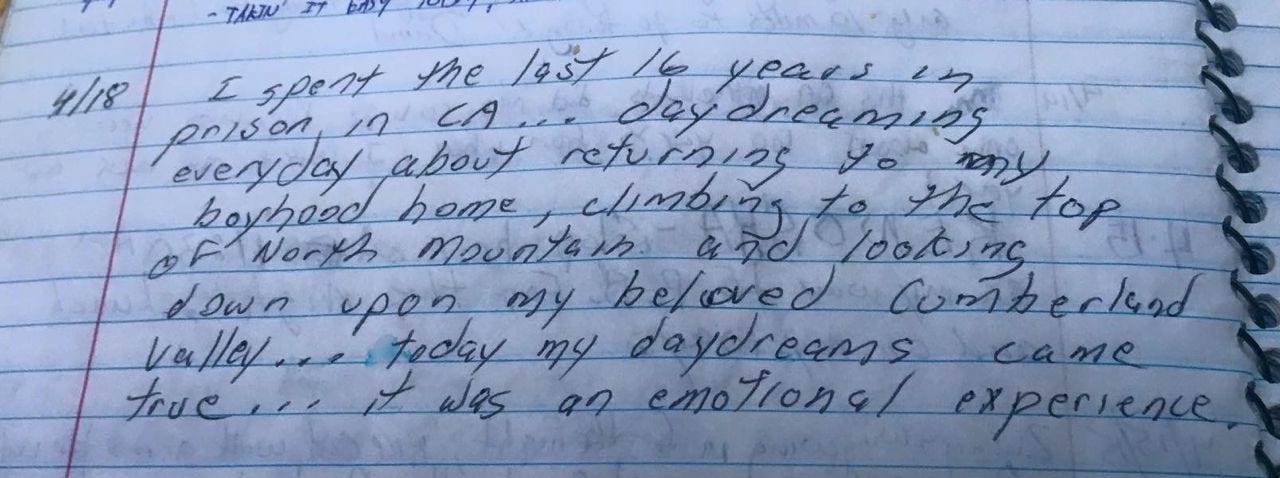 - TAKIN' IT EASY
4/18 I spent the last 16 years in
prison, in CA... daydreaming
everyday about returning to my
boyhood home, climbing to the top
of North Mountain and looking
down upon my beloved Cumberland
Valley... today my daydreams came
true... it was an emotional experience.